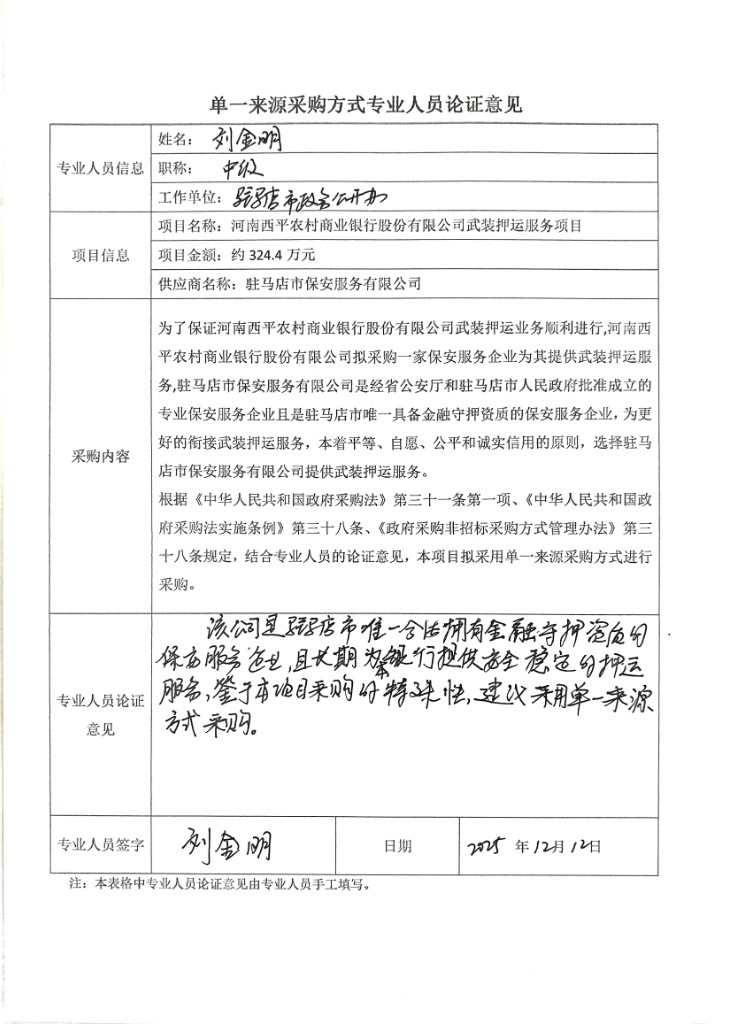 单一来源采购方式专业人员论证意见
专业人员信息
姓名：刘金明
职称：中级
工作单位：驻马店市政务公开办
项目信息
项目名称：河南西平农村商业银行股份有限公司武装押运服务项目
项目金额：约 324.4 万元
供应商名称：驻马店市保安服务有限公司
采购内容
为了保证河南西平农村商业银行股份有限公司武装押运业务顺利进行,河南西
平农村商业银行股份有限公司拟采购一家保安服务企业为其提供武装押运服
务,驻马店市保安服务有限公司是经省公安厅和驻马店市人民政府批准成立的
专业保安服务企业且是驻马店市唯一具备金融守押资质的保安服务企业，为更
好的衔接武装押运服务，本着平等、自愿、公平和诚实信用的原则，选择驻马
店市保安服务有限公司提供武装押运服务。
根据《中华人民共和国政府采购法》第三十一条第一项、《中华人民共和国政
府采购法实施条例》第三十八条、《政府采购非招标采购方式管理办法》第三
十八条规定，结合专业人员的论证意见，本项目拟采用单一来源采购方式进行
采购。
专业人员论证
意见
该公司是驻马店市唯一合法拥有金融守押资质的
保安服务企业,且长期为本银行提供安全稳定的押运
服务,鉴于本项目采购的特殊性,建议采用单一来源
方式采购。
专业人员签字
刘金明
日期
2025 年 12月 12日
注：本表格中专业人员论证意见由专业人员手工填写。